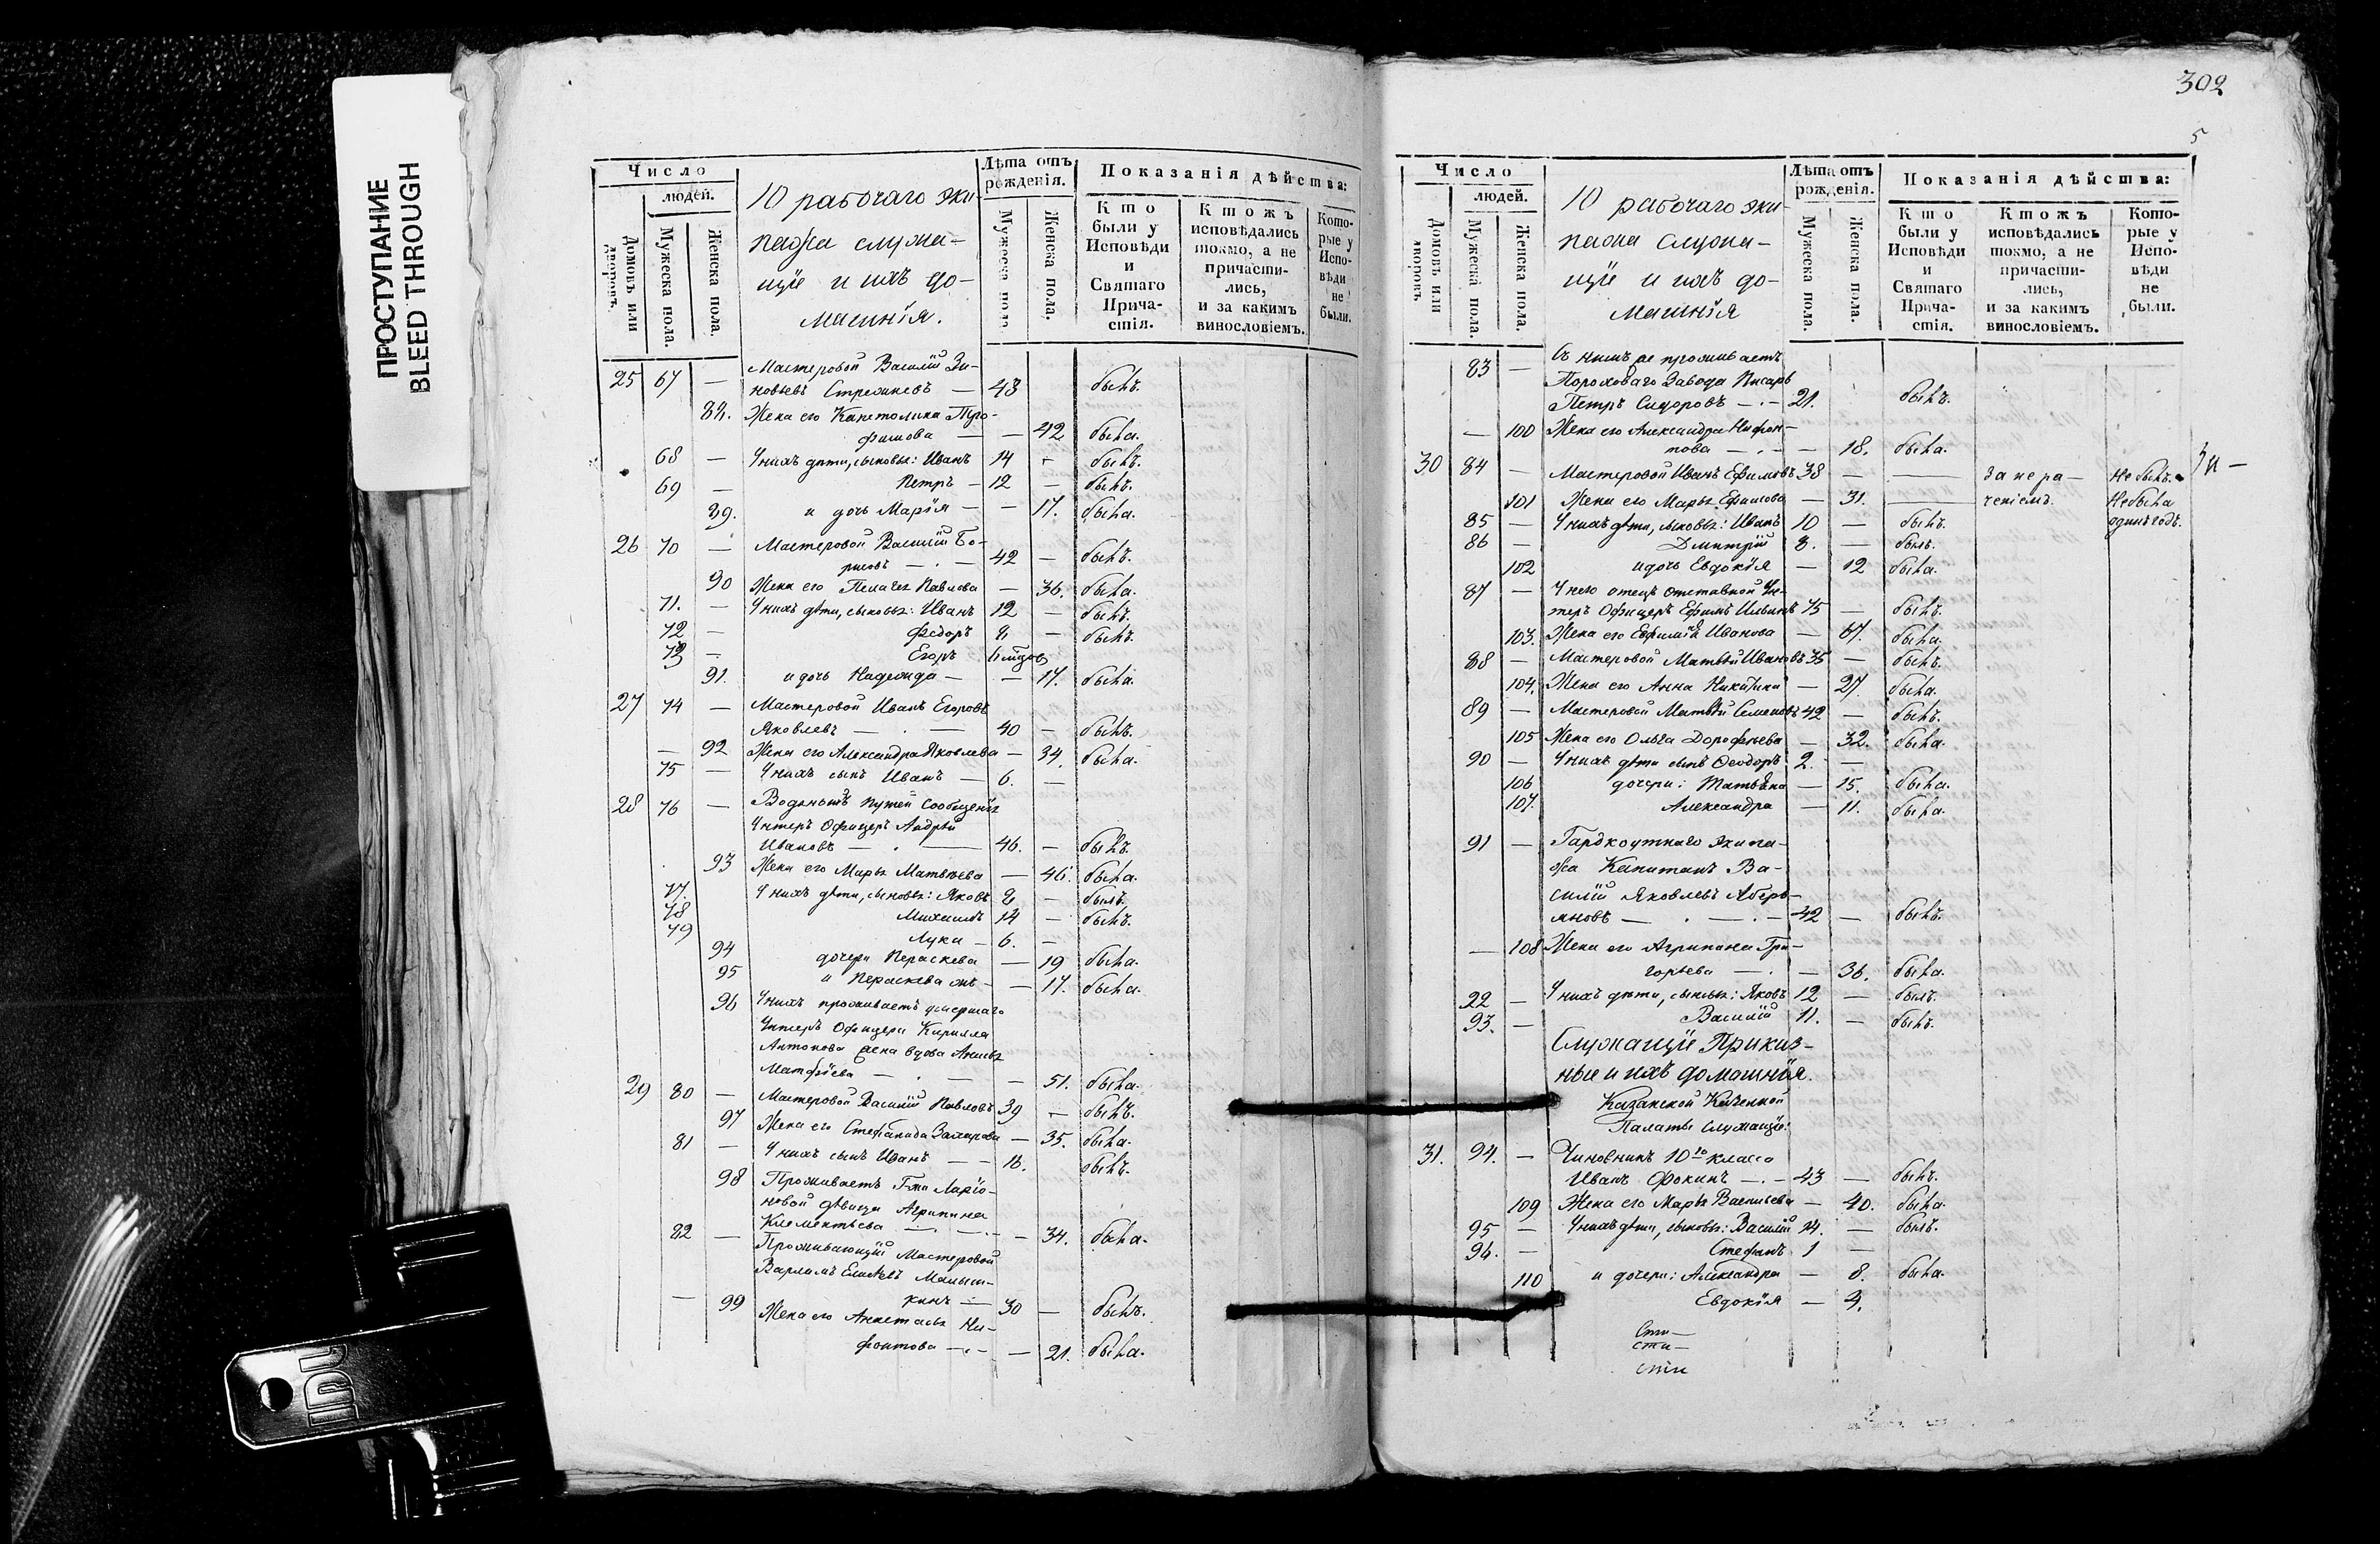 ПРОСТУПАНИЕ
BLEED THROUGH
Число
людей.
Домовъ или дворовъ.
Мужеска пола.
Женска пола.
10 рабочаго эки-
пажа служа-
щіе и ихъ до-
машнія.
Лѣта отъ рожденія.
Мужеска пола
Женска пола.
Показанія дѣйства:
Кто были у Исповѣди и Святаго Прича-стія.
Ктожъ исповѣдались токмо, а не причасти-лись, и за какимъ винословіемъ.
Кото-рые у Испо-вѣди не были.
25 67 — Мастеровой Василій Зи-
новьевъ — 43 былъ.
Жена его
42 была.
68 — У нихъ дѣти, сыновья: Иванъ 14 — былъ.
69 — Петръ — 12 — былъ.
89. и дочь Марія — — 17. была.
26 70 — Мастеровой Василій Бо-
рисовъ — . — 42 — былъ.
90 Жена его Пелагея Павлова — 36. была.
71. — У нихъ дѣти, сыновья: Иванъ 12 — былъ.
72 — Ѳедоръ — былъ.
73 — Егоръ
91. и дочь Надежда — — 17. была.
27 74 — Мастеровой Иванъ Егоровъ
Яковлевъ — . — 40 — былъ.
— 92 Жена его Александра Яковлева — 34. была.
75 — У нихъ сынъ Иванъ — 6. —
28 76 — Водяныхъ путей сообщенія
Унтеръ Офицеръ Андрей
Ивановъ — . — 46. — былъ.
93 Жена его Марья Матвѣева — 46. была.
77. У нихъ дѣти, сыновья: Яковъ — былъ.
78 Михаилъ 14 — былъ.
79 Лука — 6. —
94 дочери Параскева — 19 была.
95 и Параскева — 17. была.
96 У нихъ проживаетъ умершаго
Унтеръ Офицера Кирилла
Антонова жена вдова Анисья
Матфіева — . — — 51. была.
29 80 — Мастеровой Василій Павловъ 39 — былъ.
97 Жена его Стефанида Захарова — 35. была.
81 — У нихъ сынъ Иванъ — — 16. былъ.
98 Проживаетъ Г-жи Ларіо-
новой дѣвица Агрипина
Клементьева — . — — 34. была.
82 — Проживающій Мастеровой
Варламъ
кинъ — 30 — былъ.
— 99 Жена его Анастасья Ни-
фонтова — . — — 21. была.
302
5
Число
людей.
Домовъ или дворовъ
Мужеска пола.
Женска пола.
10 рабочаго эки-
пажа служа-
щіе и ихъ до-
машнія
Лѣта отъ рожденія.
Мужеска пола.
Женска пола.
Показанія дѣйства:
Кто были у Исповѣди и Святаго Прича-стія.
Ктожъ исповѣдались токмо, а не причасти-лись, и за какимъ винословіемъ.
Кото-рые у Испо-вѣди не были.
83 — Съ нимъ же проживаетъ
Пороховаго Завода Писарь
Петръ Сидоровъ — . — 21. былъ.
— 100 Жена его Александра Нифон-
това — . — — 18. была.
30 84 — Мастеровой Иванъ Ефимовъ 38 — — за нера- Не былъ.
101 Жена его Марья Ефимова — 31. — ченіемъ. Не была
85 — У нихъ дѣти, сыновья: Иванъ 10 — былъ. одинъ годъ.
86 — Дмитрій 8. — былъ.
102 и дочь Евдокія — 12 была.
87 — У него отецъ отставной Ун-
теръ Офицеръ Ефимъ Ильинъ 75 — былъ.
103. Жена его Евфимія Иванова — 67. была.
88 — Мастеровой Матвѣй Ивановъ 35 — былъ.
104. Жена его Анна Никитина — 27. была.
89 — Мастеровой Матвѣй Семеновъ 42 — былъ.
105 Жена его Ольга Дорофѣева — 32. была.
90 — У нихъ дѣти сынъ Ѳеодоръ 2. —
106 дочери: Татьяна — 15. была.
107. Александра — 11. была.
91 — Гардкоутнаго экипа-
жа Капитанъ Ва-
силій Яковлевъ
— . — . — 42 — былъ.
— 108 Жена его Агрипина Гри-
горьева — . — 36. была.
22 — У нихъ дѣти, сыновья: Яковъ 12 — былъ.
93. — Василій 11. — былъ.
Служащіе Приказ-
ные и ихъ домашнія.
Казанской Казенной
Палаты служащіе.
31. 94. — Чиновникъ 10го класса
Иванъ Фокинъ — . — 43 — былъ.
109 Жена его Марья Васильева — 40. была.
95 — У нихъ дѣти, сыновья: Василій 14. — былъ.
96. — Стефанъ 1 —
110 и дочери: Александра — 8. была.
Евдокія —